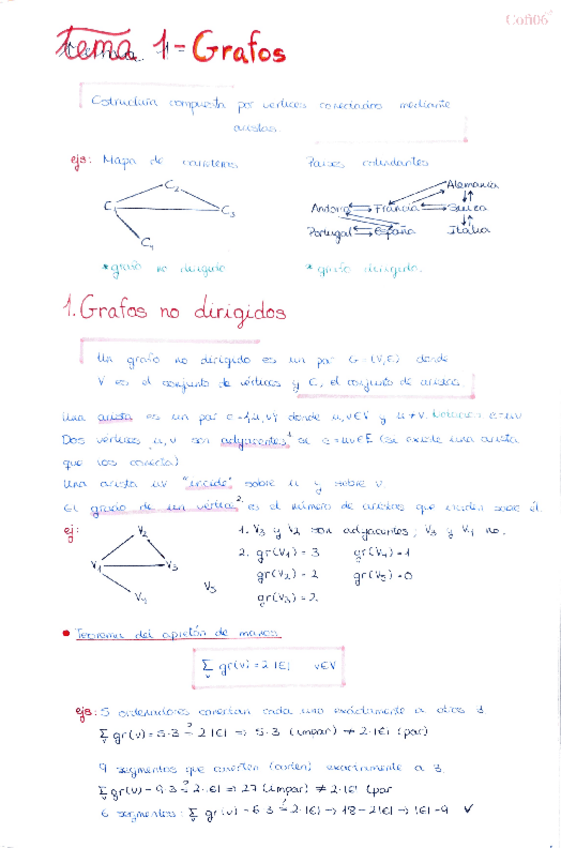 Cofi06
Tema 1- Grafos
Estructura compuesta por vértices conectados mediante
aristas.
ejs: Mapa de carreteras
Países colindantes
C2
C1
C3
C4
Alemania
Andorra Francia Suiza
Portugal España Italia
*grafo no dirigido
*grafo dirigido.
1. Grafos no dirigidos
Un grafo no dirigido es un par G=(V,E) donde
V es el conjunto de vértices y E, el conjunto de aristas.
Una arista es un par e={u,v} donde u,v∈V y u≠v. e=uv
Dos vértices u,v son adyacentes¹ si e=uv∈E (si existe una arista
que los conecta)
Una arista uv "incide" sobre u y sobre v.
El grado de un vértice² es el número de aristas que inciden sobre él.
ej:
V2
V1
V3
V4
V5
1. V3 y V2 son adyacentes; V3 y V4 no.
2. gr(V1)=3 gr(V4)=1
gr(V2)=2 gr(V5)=0
gr(V3)=2
• Teorema del apretón de manos
Σ gr(v)=2|E| v∈V
v
ejs: 5 ordenadores conectan cada uno exactamente a otros 3
Σ gr(v)=5·3 ?= 2|E| => 5·3 (impar) ≠ 2·|E| (par)
9 segmentos que exactamente a 3
Σ gr(v)=9·3 ?= 2·|E| => 27 (impar) ≠ 2·|E| (par
6 segmentos: Σ gr(v)=6·3 ?= 2·|E| -> 18=2|E| -> |E|=9 ✓